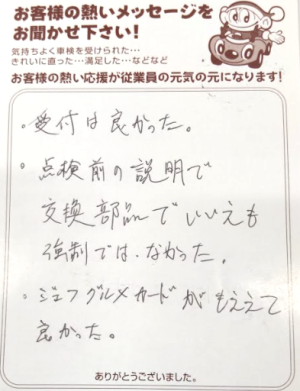 お客様の熱いメッセージを
お聞かせ下さい!
気持ちよく車検を受けられた…
きれいに直った…満足した…などなど
お客様の熱い応援が従業員の元気の元になります!
・受付は良かった。
・点検前の説明で
交換部品でいいえも
強制では、なかった。
・ジェフグルメカードがもええて
良かった。
ありがとうございました。